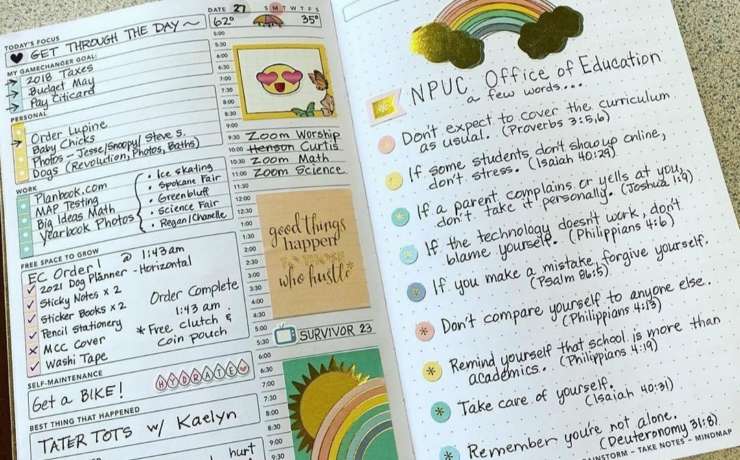 DATE 27 S M T W T F S
62° 35°
TODAY'S FOCUS
GET THROUGH THE DAY ~
MY GAMECHANGER GOAL:
2018 Taxes
Budget May
Pay Citicard
PERSONAL
Order Lupine
Baby Chicks
Photos - Jesse/Snoopy/Steve S.
Dogs (Revolution, Photos, Baths)
WORK
Planbook.com
MAP Testing
Big Ideas Math
Yearbook Photos
• Ice skating
• Spokane Fair
• Greenbluff
• Science Fair
• Regan/Chanelle
FREE SPACE TO GROW
EC Order! @ 1:43am
2021 Dog Planner - Horizontal
Sticky Notes x 2
Sticker Books x 2
Pencil Stationery
MCC Cover
Washi Tape
Order Complete
1:43 am
* Free Clutch &
Coin pouch
SELF-MAINTENANCE
HYDRATE
Get a BIKE!
BEST THING THAT HAPPENED
TATER TOTS w/ Kaelyn
hurt
5:00
5:30
6:00
6:30
7:00
7:30
8:00
8:30
9:00
9:30 Zoom Worship
10:00 Henson Curtis
10:30 Zoom Math
11:00 Zoom Science
11:30
12:00
12:30
1:00
1:30
2:00
2:30
3:00
3:30
4:00
4:30
5:00 SURVIVOR 23
5:30
6:00
6:30
7:00
7:30
8:00
8:30
9:00
9:30
good things
happen
to those
who hustle
NPUC Office of Education
a few words...
Don't expect to cover the curriculum
as usual. (Proverbs 3:5,6)
If some students don't show up online,
don't stress. (Isaiah 40:29)
If a parent complains or yells at you,
don't take it personally. (Joshua 1:9)
If the technology doesn't work, don't
blame yourself. (Philippians 4:6)
If you make a mistake, forgive yourself.
(Psalm 86:5)
Don't compare yourself to anyone else..
(Philippians 4:13)
Remind yourself that school is more than
academics. (Philippians 4:19)
Take care of yourself.
(Isaiah 40:31)
Remember you're not alone.
(Deuteronomy 31:8)
BRAINSTORM - TAKE NOTES - MINDMAP